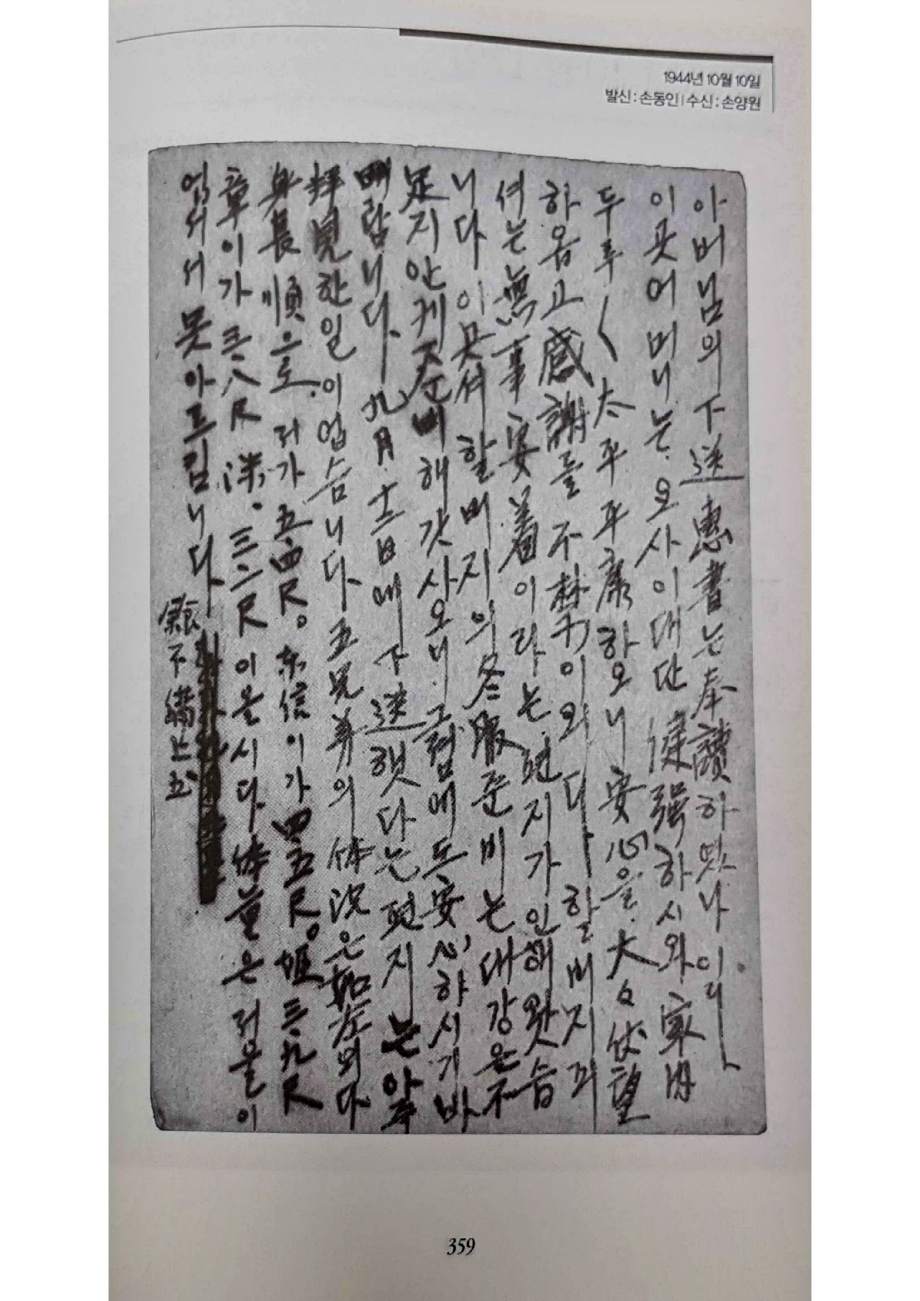 1944년 10월 10일
발신 : 손동인 | 수신 : 손양원
아버님의 下送 惠書는 奉讀하였나이다
이곳 어머니는 오사이 대단 健强하시와 家內
두루〱 太平 平康하오니 安心을 大々伏望
하옵고 感謝를 不禁이외다 할버지꾀
셔는 無事 安着이라는 편지가 인해 왓슴
니다 이곳셔 할버지의 冬服 준비는 대강은 不
足지 안케 준비해 갓사오니 그 점에도 安心하시기 바
람니다 九月 十二日에 下送햇다는 편지는 아즉
拜見한 일이 업슴니다 五兄弟의 体况은 如左외다
身長順으로 저가 五四尺。 东信이가 四五尺。 姬 三九尺
章이가 三八尺 洙。 三二尺이올시다 体重은 저울이
업서서 못 아르킴니다
餘不備上書
359